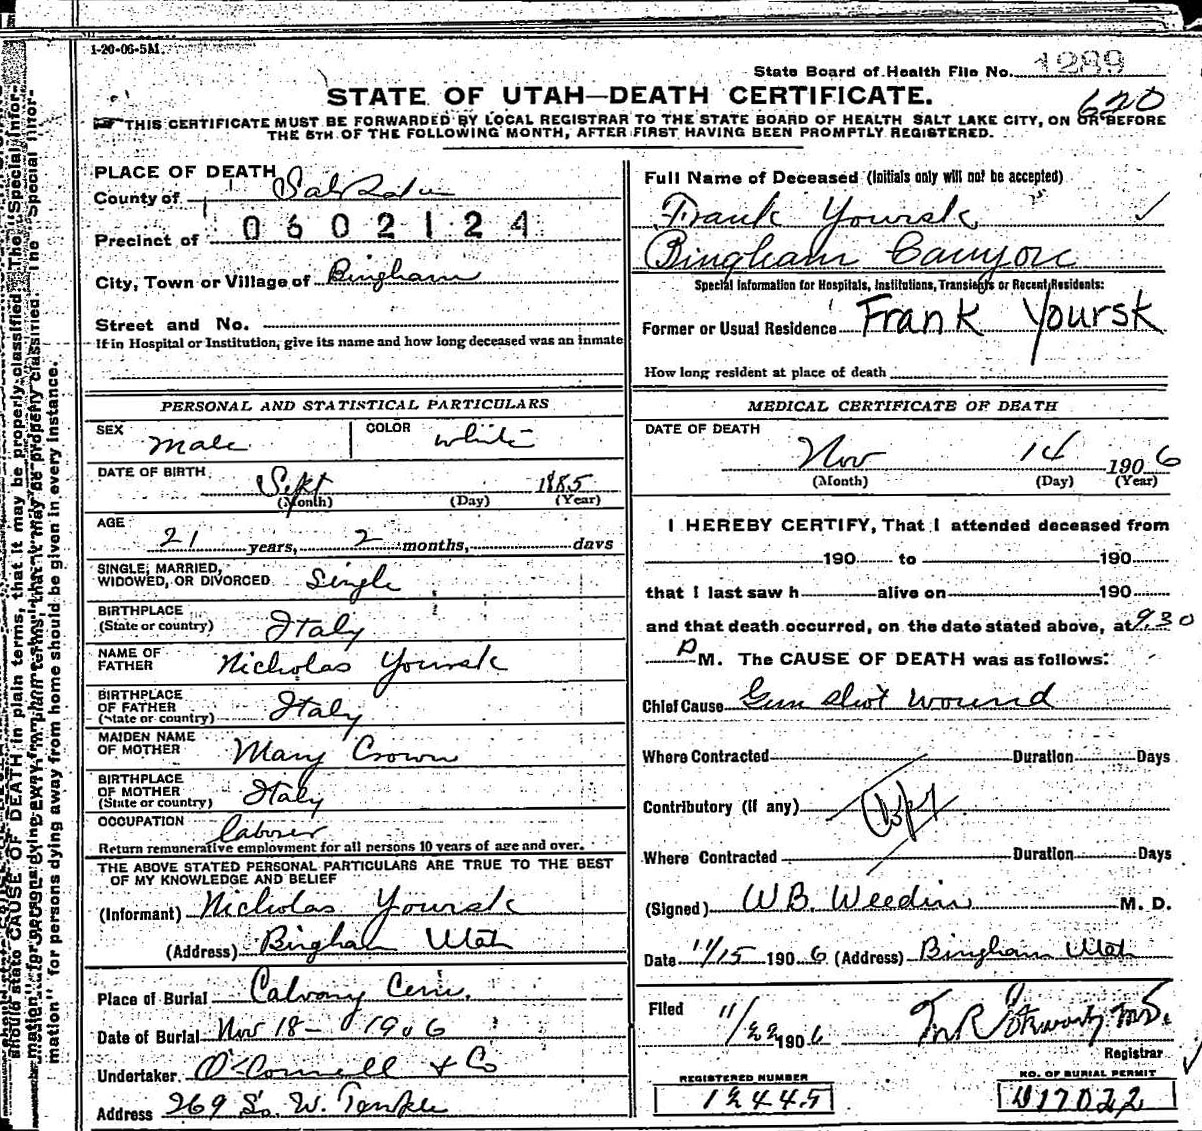 1-20-06-5M.
State Board of Health File No. 1289
STATE OF UTAH—DEATH CERTIFICATE.
620
THIS CERTIFICATE MUST BE FORWARDED BY LOCAL REGISTRAR TO THE STATE BOARD OF HEALTH SALT LAKE CITY, ON OR BEFORE
THE 5TH OF THE FOLLOWING MONTH, AFTER FIRST HAVING BEEN PROMPTLY REGISTERED.
PLACE OF DEATH
County of Salt Lake
Precinct of 0602124
City, Town or Village of Bingham
Street and No.
If in Hospital or Institution, give its name and how long deceased was an inmate
PERSONAL AND STATISTICAL PARTICULARS
SEX Male COLOR white
DATE OF BIRTH Sept 1885
(Month) (Day) (Year)
AGE
21 years, 2 months, days
SINGLE, MARRIED,
WIDOWED, OR DIVORCED Single
BIRTHPLACE
(State or country) Italy
NAME OF
FATHER Nicholas Yoursk
BIRTHPLACE
OF FATHER
(State or country) Italy
MAIDEN NAME
OF MOTHER Mary Crown
BIRTHPLACE
OF MOTHER
(State or country) Italy
OCCUPATION Laborer
Return remunerative employment for all persons 10 years of age and over.
THE ABOVE STATED PERSONAL PARTICULARS ARE TRUE TO THE BEST
OF MY KNOWLEDGE AND BELIEF
(Informant) Nicholas Yoursk
(Address) Bingham Utah
Place of Burial Calvary Cem.
Date of Burial Nov 18 - 1906
Undertaker O'Connell & Co
Address 269 So. W. Temple
Full Name of Deceased (Initials only will not be accepted)
Frank Yoursk
Bingham Canyon
Special Information for Hospitals, Institutions, Transients or Recent Residents:
Former or Usual Residence Frank Yoursk
How long resident at place of death
MEDICAL CERTIFICATE OF DEATH
DATE OF DEATH
Nov 14 1906
(Month) (Day) (Year)
I HEREBY CERTIFY, That I attended deceased from
190 to 190
that I last saw h alive on 190
and that death occurred, on the date stated above, at 930
P M. The CAUSE OF DEATH was as follows:
Chief Cause Gun shot wound
Where Contracted Duration Days
Contributory (if any)
Where Contracted Duration Days
(Signed) W B. Weedin M. D.
Date 11/15 1906 (Address) Bingham Utah
Filed 11/22 1906
Registrar
REGISTERED NUMBER
12445
NO. OF BURIAL PERMIT
U17022
should state CAUSE OF DEATH in plain terms, that it may be properly classified. The "Special Infor-
mation" for persons dying away from home should be given in every instance.